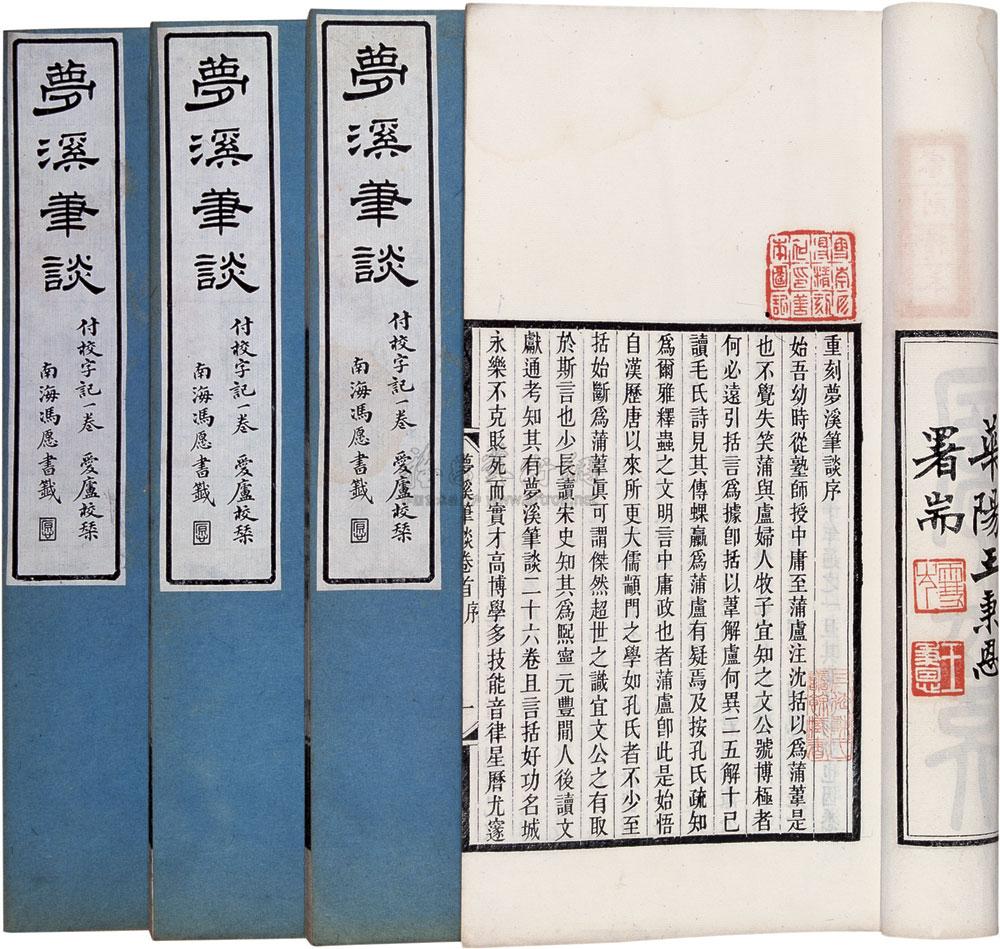 夢溪筆談
付校字記一卷 愛廬校栞
南海馮愿書籤
夢溪筆談
付校字記一卷 愛廬校栞
南海馮愿書籤
夢溪筆談
付校字記一卷 愛廬校栞
南海馮愿書籤
華陽王秉恩
署耑
王秉恩
重刻夢溪筆談序
始吾幼時從塾師授中庸至蒲盧注沈括以爲蒲葦是
也不覺失笑蒲與盧婦人牧子宜知之文公號博極者
何必遠引括言爲據卽括以葦解盧何異二五解十已
讀毛氏詩見其傳蜾蠃爲蒲盧有疑焉及按孔氏疏知
爲爾雅釋蟲之文明言中庸政也者蒲盧卽此是始悟
自漢歷唐以來所更大儒顓門之學如孔氏者不少至
括始斷爲蒲葦眞可謂傑然超世之識宜文公之有取
於斯言也少長讀宋史知其爲熙寧元豐閒人後讀文
獻通考知其有夢溪筆談二十六卷且言括好功名城
永樂不克貶死而實才高博學多技能音律星曆尤邃
夢溪筆談卷首 序
一